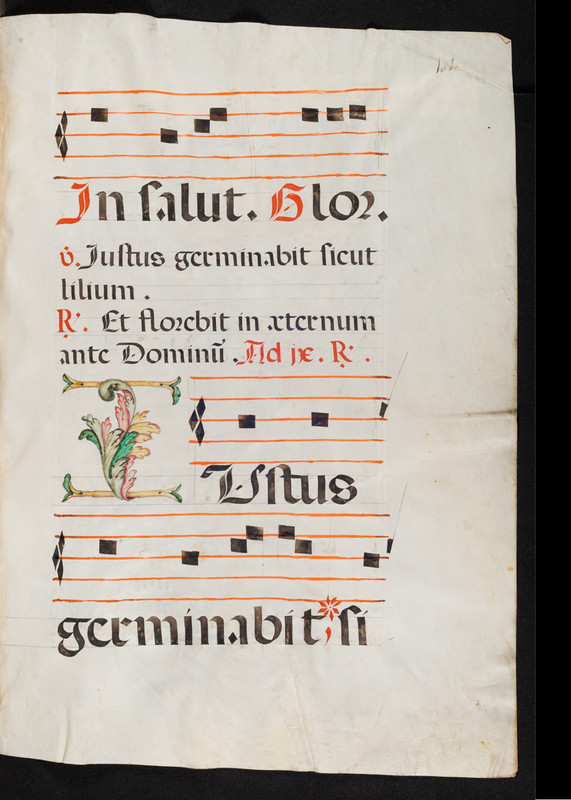 In salut. Glor.
℣. Justus germinabit sicut
lilium.
℟. Et florebit in æternum
ante Dominū. Ad jx. ℟.
IUstus
germinabit,* si